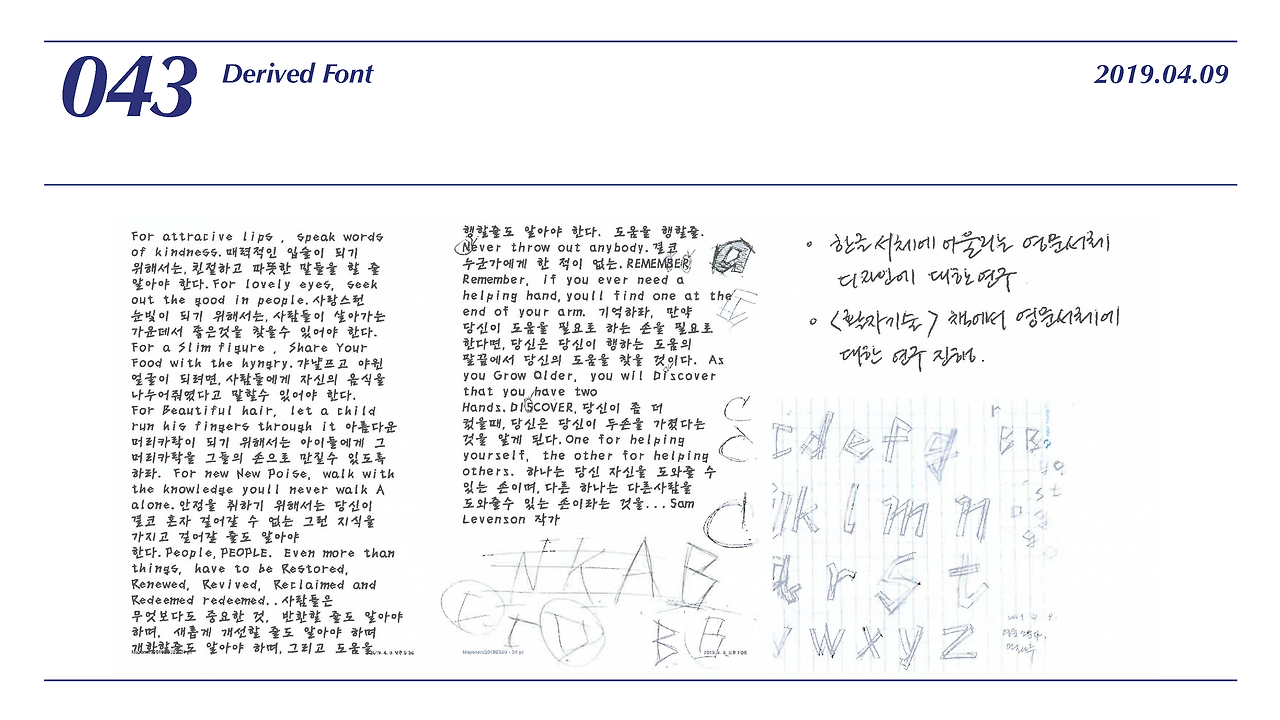 043 Derived Font
2019.04.09
For attracive lips , speak words
of kindness.매력적인 입술이 되기
위해서는,친절하고 따뜻한 말들을 할 줄
알아야 한다.For lovely eyes, seek
out the good in people.사랑스런
눈빛이 되기 위해서는,사람들이 살아가는
가운데서 좋은것을 찾을수 있어야 한다.
For a Slim figure , Share Your
Food with the hyngry.갸냘프고 야윈
얼굴이 되려면,사람들에게 자신의 음식을
나누어줘였다고 말할수 있어야 한다.
For Beautiful hair, let a child
run his fingers through it 아름다운
머리카락이 되기 위해서는 아이들에게 그
머리카락을 그들의 손으로 만질수 있도록
하라. For new New Poise, walk with
the knowledge youll never walk A
alone.안정을 취하기 위해서는 당신이
결코 혼자 걸어갈 수 없는 그런 지식을
가지고 걸어갈 줄도 알아야
한다.People,PEOPLE. Even more than
things, have to be Restored,
Renewed, Revived, Reclaimed and
Redeemed redeemed..사람들은
무엇보다도 중요한 것, 반환할 줄도 알아야
하며, 새롭게 개선할 줄도 알아야 하며
개화할줄도 알아야 하며,그리고 도움을
행할줄도 알아야 한다. 도움을 행할줄.
Never throw out anybody.결코
누군가에게 한 적이 없는.REMEMBER
Remember, if you ever need a
helping hand,youll find one at the
end of your arm. 기억하라, 만약
당신이 도움을 필요로 하는 손을 필요로
한다면,당신은 당신이 행하는 도움의
팔끝에서 당신의 도움을 찾을 것이다. As
you Grow Older, you wil Discover
that you have two
Hands.DISCOVER,당신이 좀 더
컸을때,당신은 당신이 두손을 가졌다는
것을 알게 된다.One for helping
yourself, the other for helping
others. 하나는 당신 자신을 도와줄 수
있는 손이며,다른 하나는 다른사람을
도와줄수 있는 손이라는 것을...Sam
Levenson 작가
N K A B
I D B B
C
C
C
• 한글서체에 어울리는 영문서체
디자인에 대한연구
• <활자기술> 책에서 영문서체에
대한 연구 진행.
c d e f g B B
k l m n
r s t
w x y z